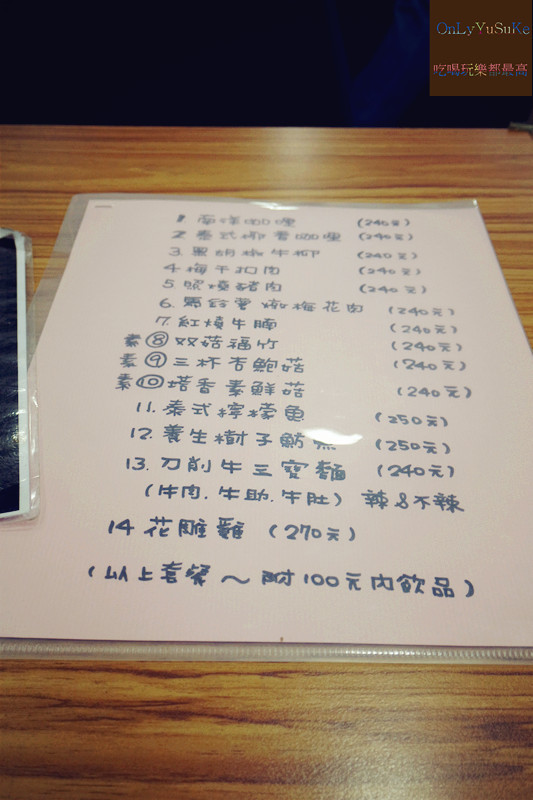 OnLyYuSuKe
吃喝玩樂都最高
1 南洋咖哩 (240元)
2 泰式椰香咖哩 (240元)
3. 黑胡椒牛柳 (240元)
4 梅干扣肉 (240元)
5. 照燒豬肉 (240元)
6. 馬鈴薯燉梅花肉 (240元)
7. 紅燒牛腩 (240元)
素 ⑧ 双菇福竹 (240元)
素 ⑨ 三杯杏鮑菇 (240元)
素 ⑩ 塔香素鮮菇 (240元)
11. 泰式檸檬魚 (250元)
12. 養生樹子魴魚 (250元)
13. 刀削牛三寶麵 (240元)
(牛肉.牛助.牛肚) 辣&不辣
14 花雕雞 (270元)
(以上套餐~附100元內飲品)